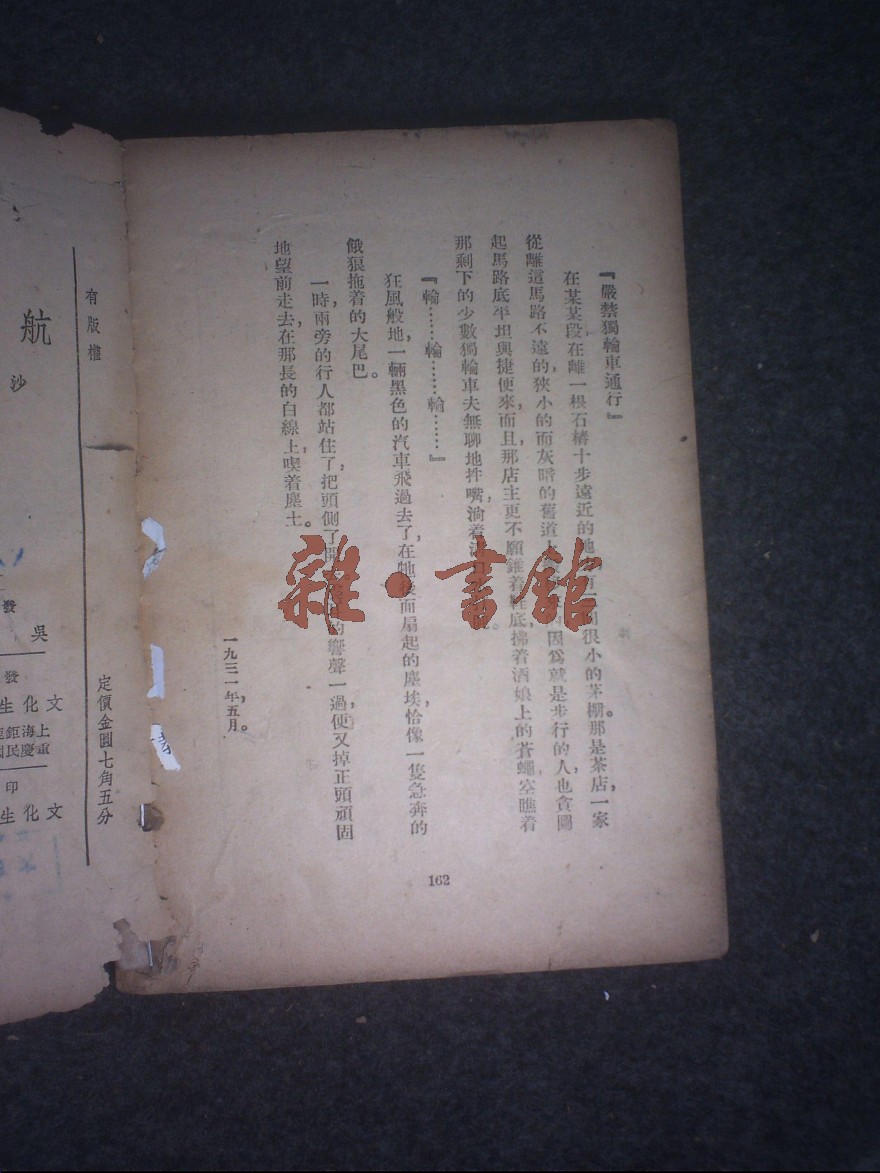 『嚴禁獨輪車通行』
在某某段在離一根石樁十步遠近的地 一 很小的茅棚。那是茶店，一家
從離這馬路不遠的，狹小的而灰暗的舊道上 因爲就是步行的人，也貪圖
起馬路底平坦與捷便來而且，那店主更不願 着 底拂着酒娘上的蒼蠅，空瞧着
那剩下的少數獨輪車夫無聊地抖嘴淌着
『輪……輪……輪……』
狂風般地，一輛黑色的汽車飛過去了，在牠後面扇起的塵埃，恰像一隻急奔的
餓狼拖着的大尾巴。
一時，兩旁的行人都站住了，把頭側了開 的響聲一過，便又掉正頭頑固
地望前走去，在那長的白線上，喫着塵土。
一九三一年，五月。
162
雜·書館
有版權
定價金圓七角五分
航
沙
發
吳
發
文化生
上海鉅
重慶民
印
文化生